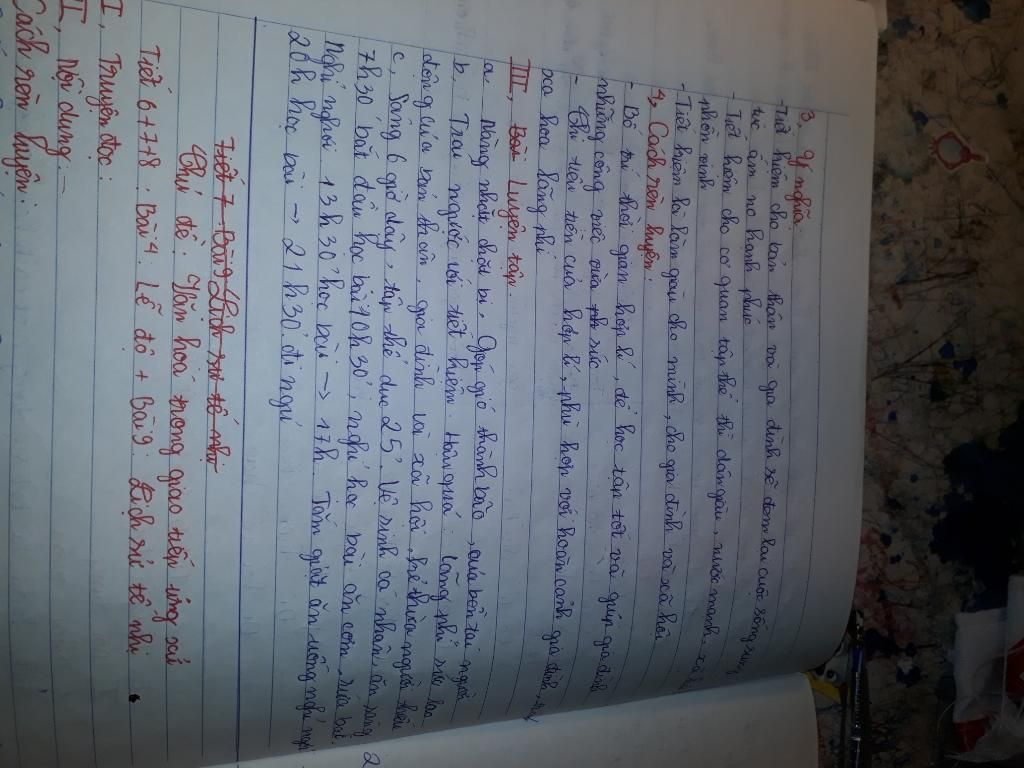 3, Ý nghĩa
- Tiết kiệm cho bản thân và gia đình sẽ đem lại cuộc sống sung
túc, ấm no hạnh phúc
- Tiết kiệm cho cơ quan tập thể thì dân giàu, nước mạnh, xã hội
phồn vinh
- Tiết kiệm là làm giàu cho mình, cho gia đình và xã hội
4, Cách rèn luyện:
- Bố trí thời gian hợp lí, để học tập tốt và giúp gia đình
những công việc vừa sức
- Chi tiêu tiền của hợp lí, phù hợp với hoàn cảnh gia đình,
xa hoa lãng phí
III, Bài Luyện tập.
a. Năng nhặt chặt bị. Góp gió thành bão, của bền tại người
b. Trái ngược với tiết kiệm. Hậu quả: Lãng phí
động của bản thân, gia đình và xã hội, người
c, Sáng 6 giờ dậy, tập thể dục 25'. Vệ sinh cá nhân, ăn sáng
7h30 bắt đầu học bài 10h30', nghỉ học bài ăn cơm, rửa bát.
Nghỉ ngơi 13h30' học bài → 17h. Tắm giặt ăn uống nghỉ
20h học bài → 21h30 đi ngủ
2
Tiết 7 Bài 9 Lịch sự tế nhị
Chủ đề: Văn hoá trong giao tiếp ứng xử
Tiết 6+7+8: Bài 4: Lễ độ + Bài 9: Lịch sự tế nhị
I, Truyện đọc:
II, Nội dung: -
Cách rèn luyện: